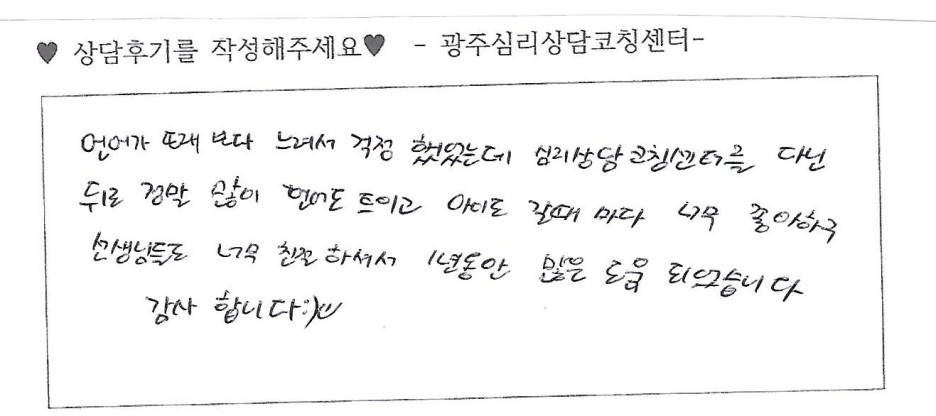 ♥ 상담후기를 작성해주세요♥ - 광주심리상담코칭센터-
언어가 또래 보다 느려서 걱정 했었는데 심리상담코칭센터를 다닌
뒤로 정말 많이 언어도 트이고 아이도 갈때 마다 너무 좋아하구
선생님들도 너무 친절 하셔서 1년동안 많은 도움 되었습니다
감사 합니다:)